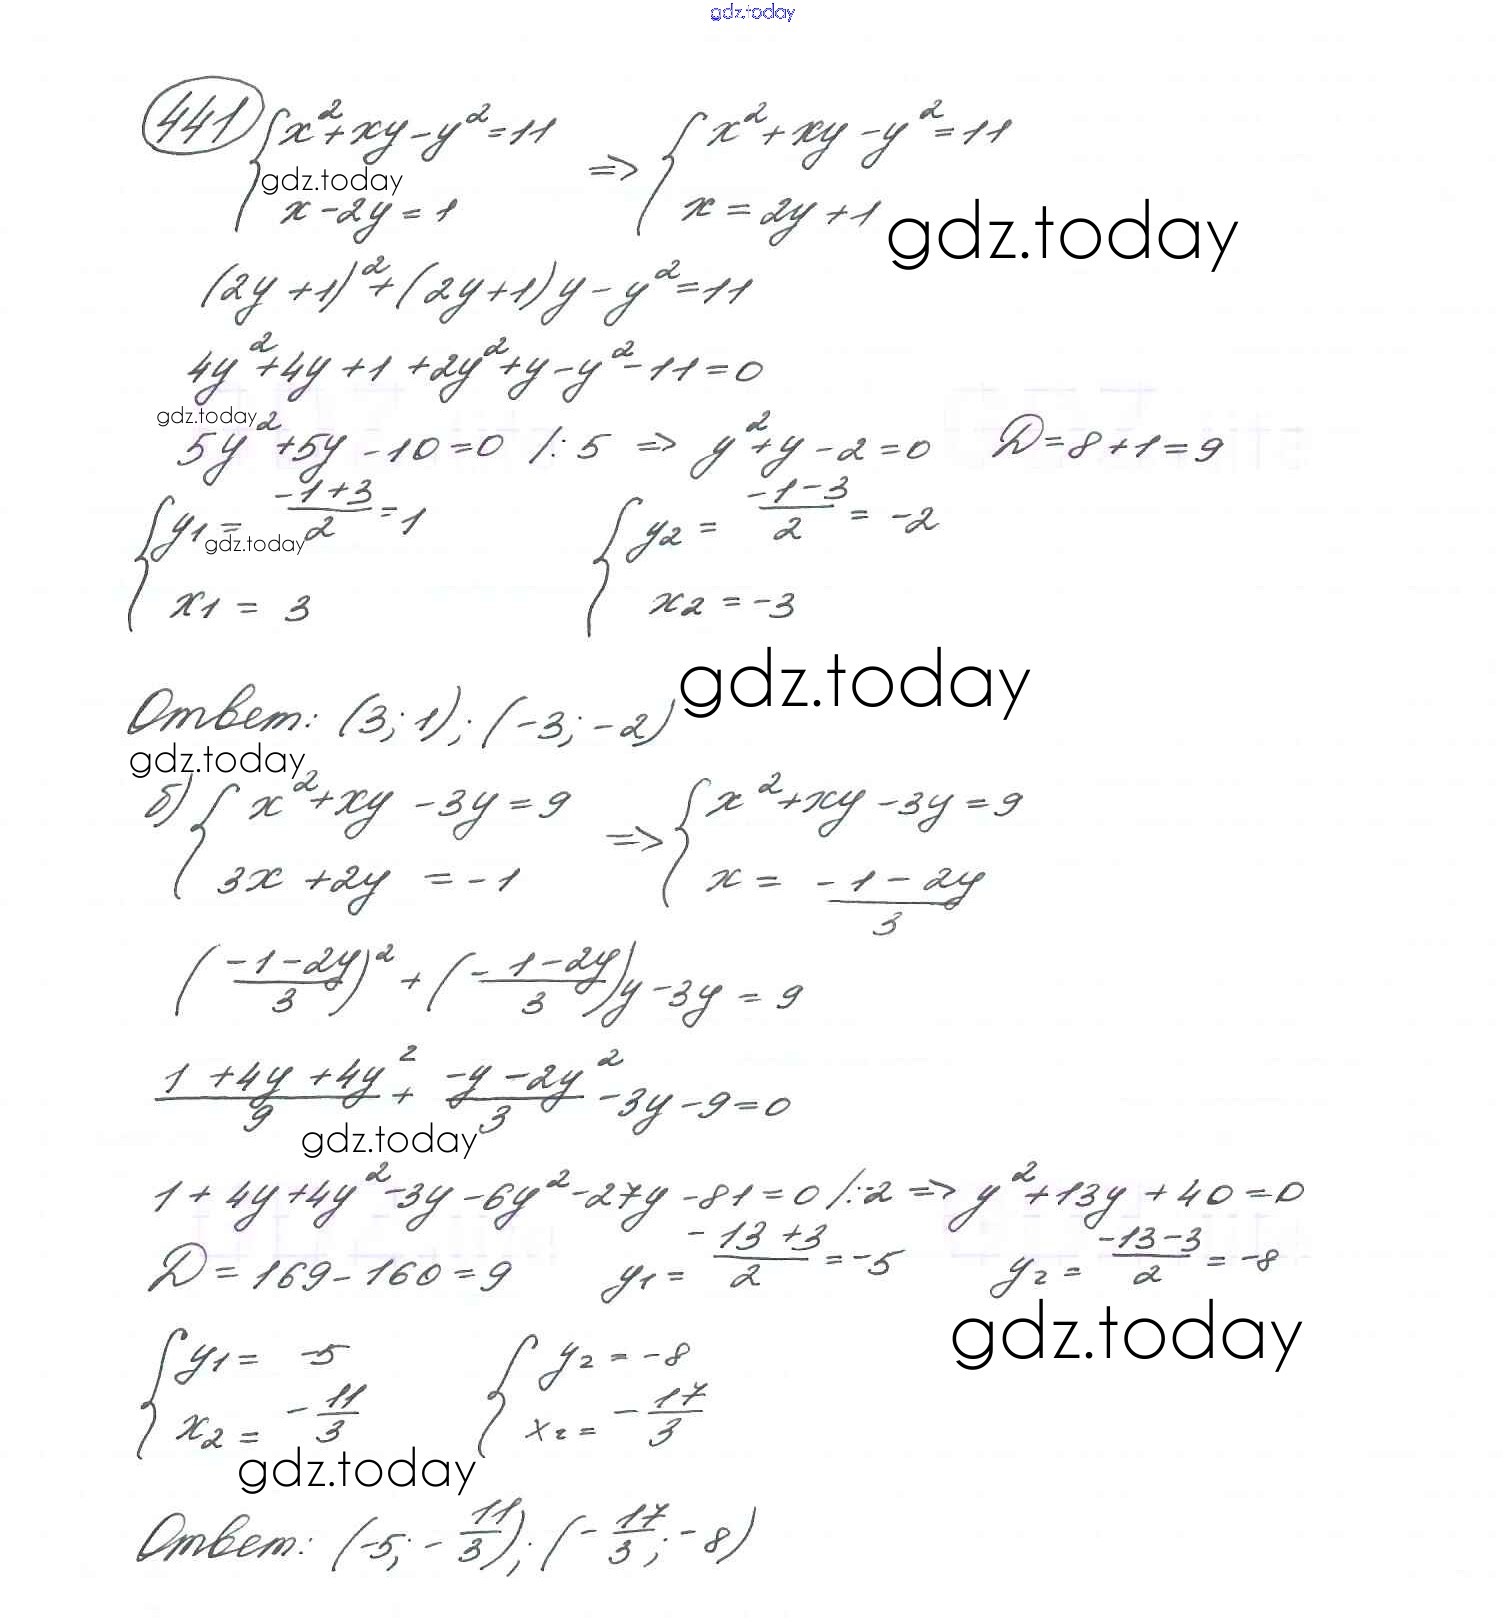 gdz.today
441 { x² + xy - y² = 11 => { x² + xy - y² = 11
gdz.today
x - 2y = 1 x = 2y + 1 gdz.today
(2y + 1)² + (2y + 1) y - y² = 11
4y² + 4y + 1 + 2y² + y - y² - 11 = 0
gdz.today
5y² + 5y - 10 = 0 /: 5 => y² + y - 2 = 0 D = 8 + 1 = 9
{ y1 = (-1 + 3)/2 = 1 { y2 = (-1 - 3)/2 = -2
gdz.today
x1 = 3 x2 = -3
gdz.today
Ответ: (3; 1); (-3; -2)
gdz.today
б) { x² + xy - 3y = 9 => { x² + xy - 3y = 9
3x + 2y = -1 x = (-1 - 2y)/3
((-1 - 2y)/3)² + ((-1 - 2y)/3) y - 3y = 9
(1 + 4y + 4y²)/9 + (-y - 2y²)/3 - 3y - 9 = 0
gdz.today
1 + 4y + 4y² - 3y - 6y² - 27y - 81 = 0 /: -2 => y² + 13y + 40 = 0
D = 169 - 160 = 9 y1 = (-13 + 3)/2 = -5 y2 = (-13 - 3)/2 = -8
gdz.today
{ y1 = -5 { y2 = -8
x2 = -11/3 x2 = -17/3
gdz.today
Ответ: (-5; -11/3); (-17/3; -8)